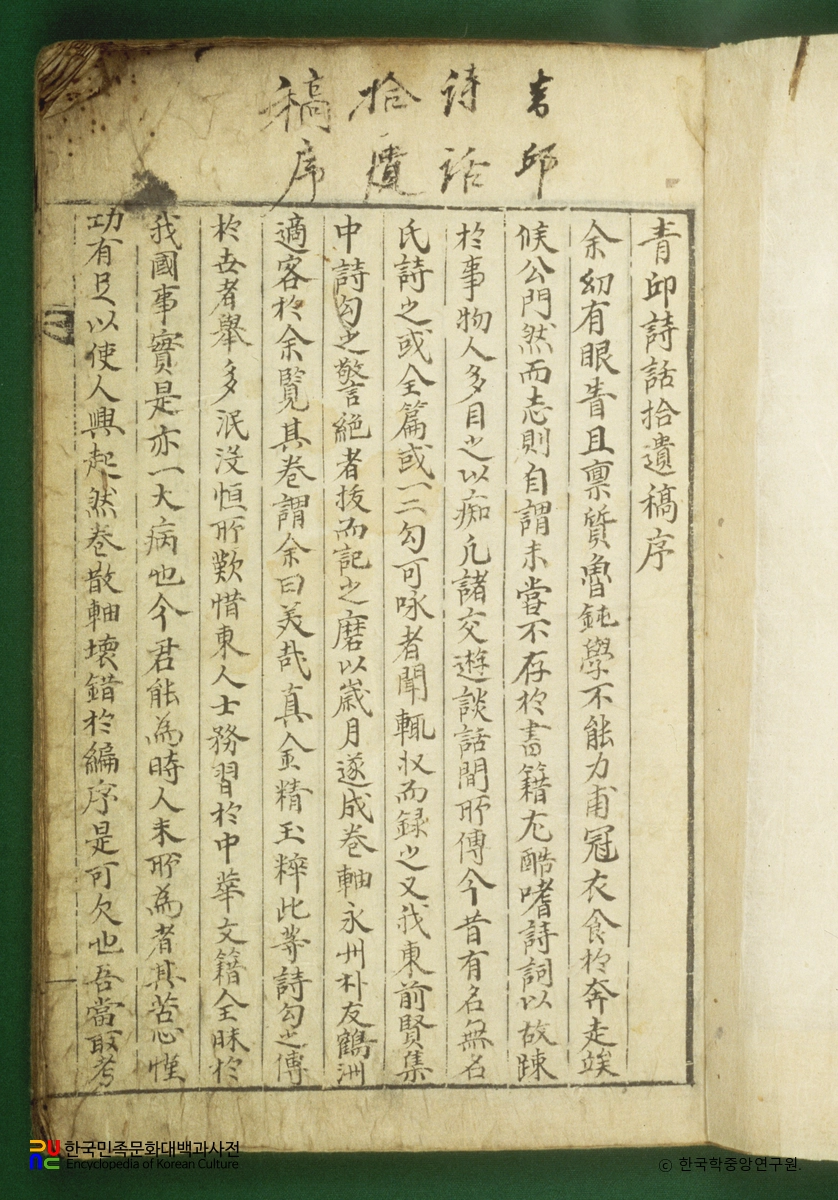 青邱
詩話
拾遺
稿序
青邱詩話拾遺稿序
余幼有眼眚且禀質魯鈍學不能力甫冠衣食於奔走竢
候公門然而志則自謂未嘗不存於書籍尤酷嗜詩詞以故踈
於事物人多目之以痴凡諸交遊談話間所傳今昔有名無名
氏詩之或全篇或一二勾可咏者聞輒収而録之又我東前賢集
中詩勾之警絕者拔而記之磨以歲月遂成卷軸永州朴友鶴洲
適客於余覧其卷謂余曰美哉真金精玉粹此等詩勾之傳
於世者舉多泯沒恒所歎惜東人士務習於中華文籍全昧於
我國事實是亦一大病也今君能為時人未所為者其苦心惟
功有足以使人興起然卷散軸壞錯於編序是可欠也吾當取考
한국민족문화대백과사전
Encyclopedia of Korean Culture
© 한국학중앙연구원.